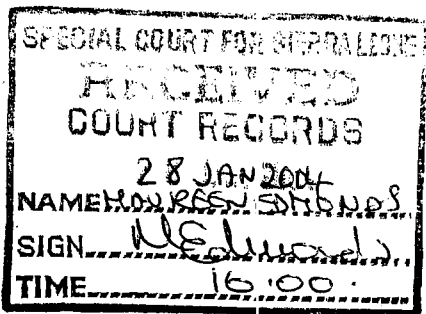 SPECIAL COURT FOR SIERRA LEONE
RECEIVED
COURT RECORDS
28 JAN 2004
NAME MAUREEN EDMONDS
SIGN MEdmonds
TIME 16:00.